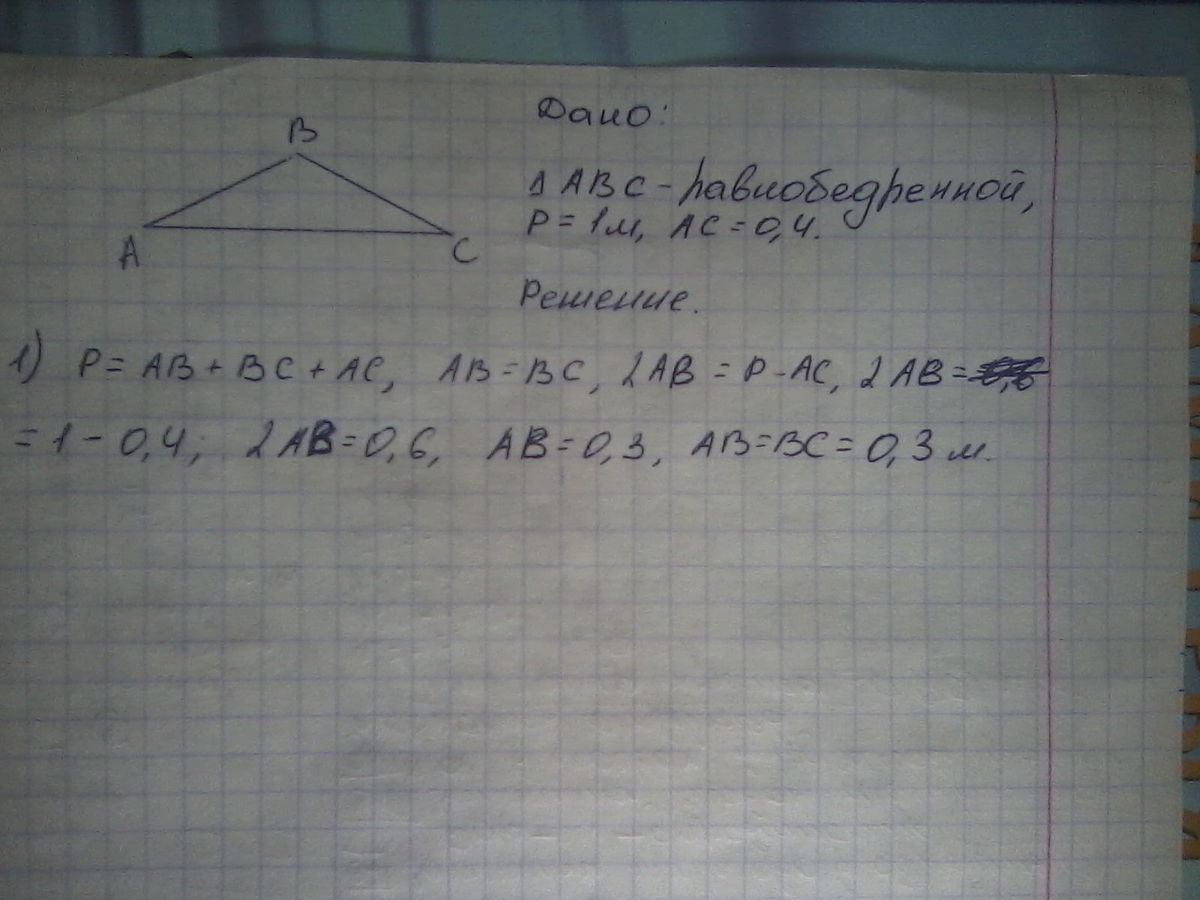 B
A
C
Дано:
Δ ABC - равнобедренной,
P = 1м, AC = 0,4.
Решение.
1) P = AB + BC + AC, AB = BC, 2AB = P - AC, 2AB =
= 1 - 0,4; 2AB = 0,6, AB = 0,3, AB = BC = 0,3 м.